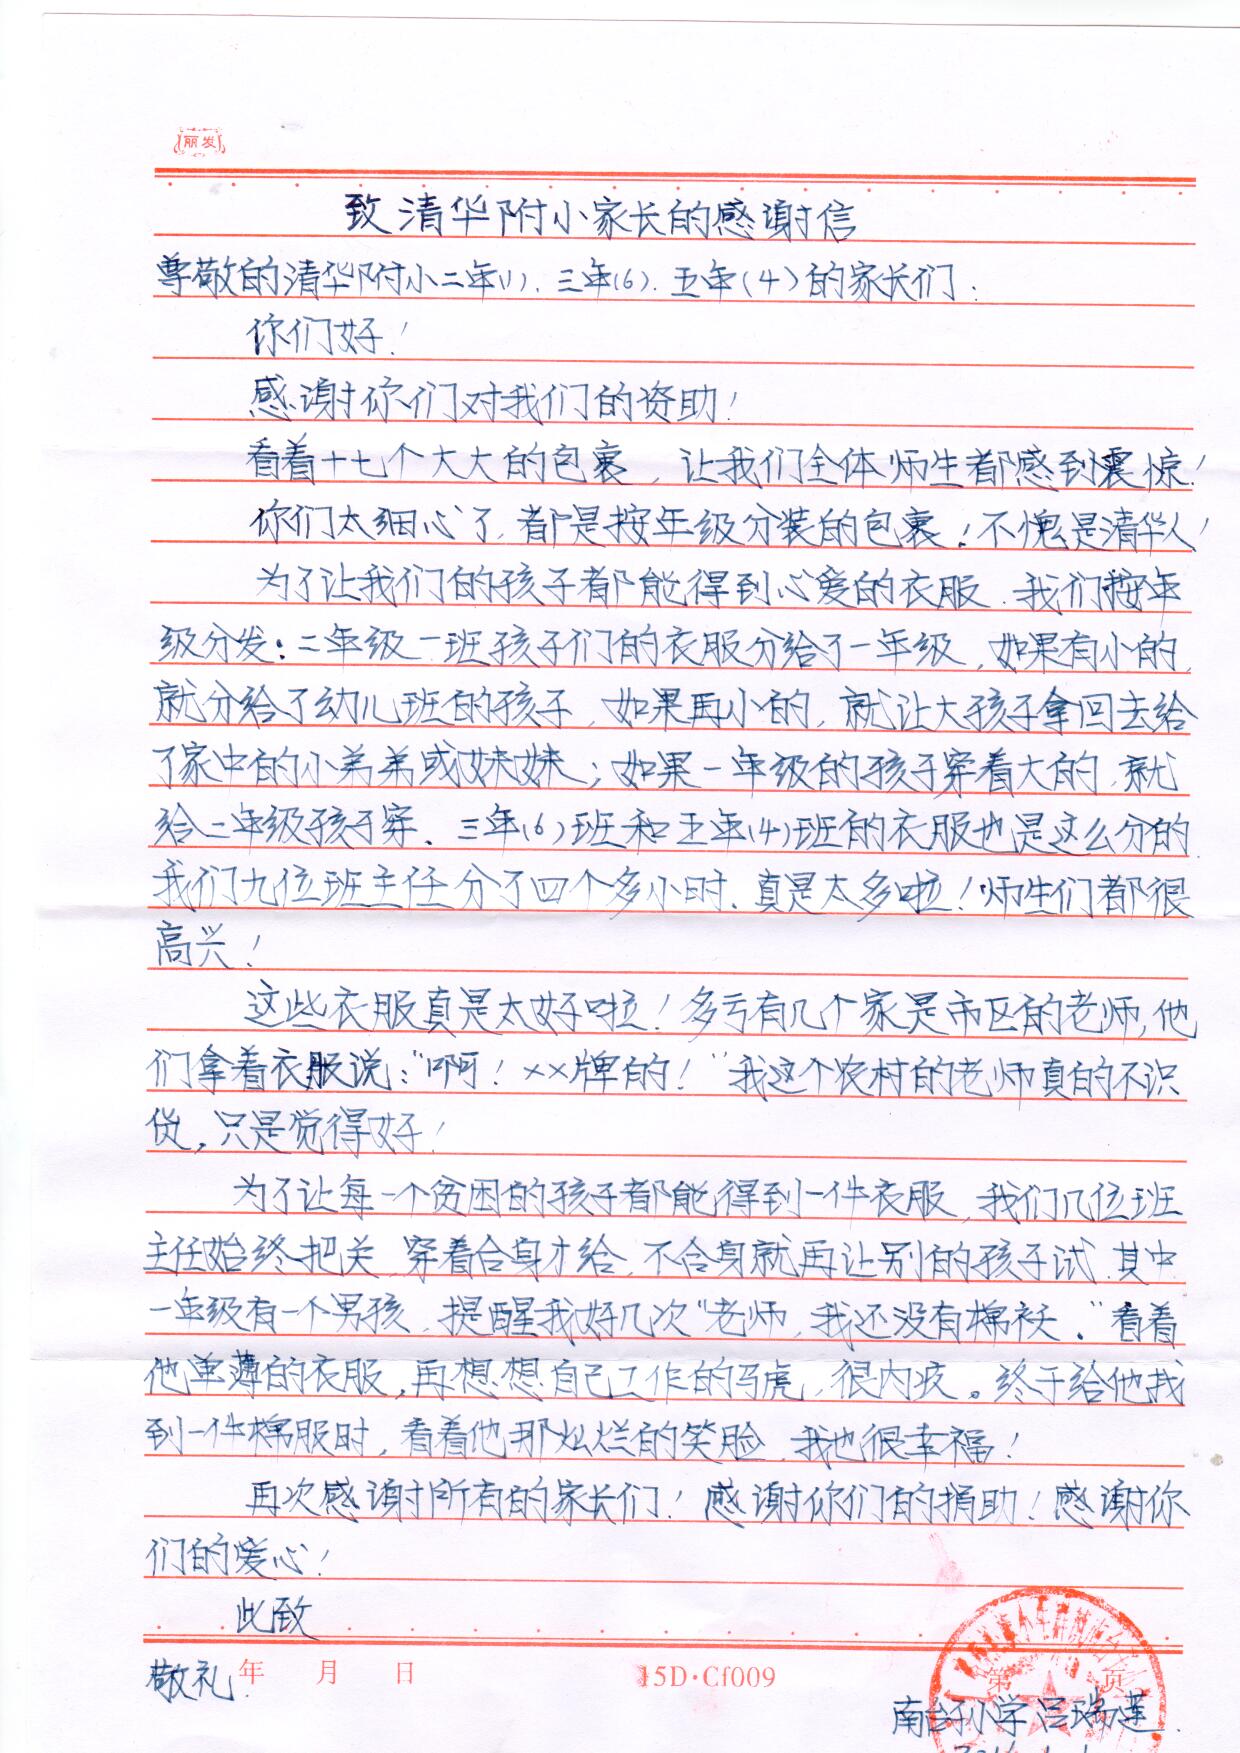 丽发
致清华附小家长的感谢信
尊敬的清华附小二年(1)、三年(6)、五年(4)的家长们:
你们好!
感谢你们对我们的资助!
看着十七个大大的包裹,让我们全体师生都感到震惊!
你们太细心了,都是按年级分装的包裹!不愧是清华人!
为了让我们的孩子都能得到心爱的衣服,我们按年
级分发:二年级一班孩子们的衣服分给了一年级,如果有小的,
就分给了幼儿班的孩子,如果再小的,就让大孩子拿回去给
了家中的小弟弟或妹妹;如果一年级的孩子穿着大的,就
给二年级孩子穿、三年(6)班和五年(4)班的衣服也是这么分的
我们九位班主任分了四个多小时、真是太多啦!师生们都很
高兴!
这些衣服真是太好啦!多亏有几个家是市区的老师,他
们拿着衣服说:“啊!××牌的!”我这个农村的老师真的不识
货,只是觉得好!
为了让每一个贫困的孩子都能得到一件衣服,我们几位班
主任始终把关,穿着合身才给,不合身就再让别的孩子试.其中
一年级有一个男孩,提醒我好几次“老师,我还没有棉袄。”看着
他单薄的衣服,再想想自己工作的马虎,很内疚。终于给他找
到一件棉服时,看着他那灿烂的笑脸,我也很幸福!
再次感谢所有的家长们!感谢你们的捐助!感谢你
们的爱心!
此致
敬礼.
年 月 日 15D·Cf009 第 页
南台子小学 吕瑞莲